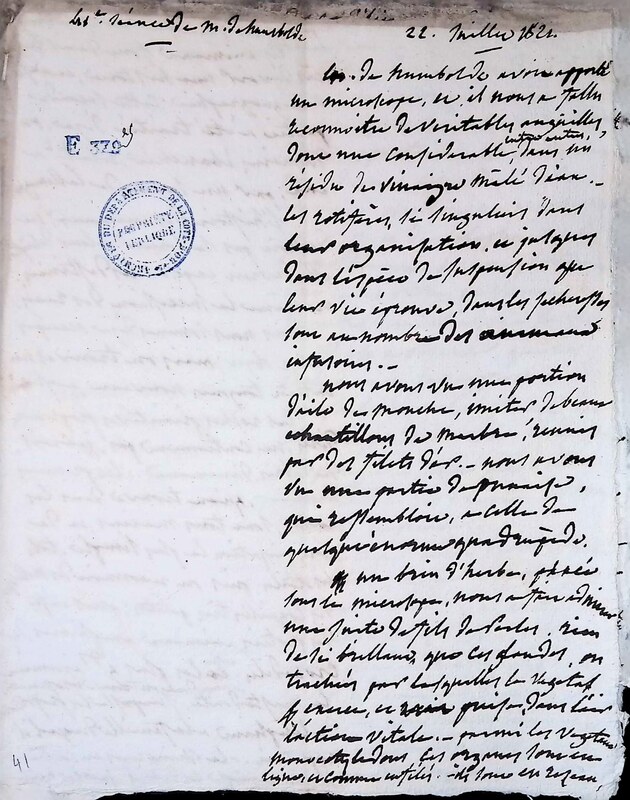 41e. séance de M. de humboldt
22. Juillet 1821.
E 379 25
ARCHIVES DU DÉPARTEMENT DE LA CÔTE-D'OR
PROPRIÉTÉ
PUBLIQUE
M. de humboldt avoit apporté
un microscope, et il nous a fallu
reconnoitre de veritables anguilles
dont une considérable, entre autres, dans un
résidu de vinaigre mêlé d'eau. -
les rotifères, si singuliers dans
leur organisation, et jusques
dans l'espèce de suspension que
leur vie éprouve, dans les secheresses
sont au nombre des animaux
infusoires. -
nous avons vu une portion
d'aile de mouche, imiter de beaux
echantillons de marbre, reunis
par des filets d'or. - nous avons
vu une partie de punaise,
qui ressembloit, a celle de
quelqu'énorme quadrupède.
un brin d'herbe, placé
sous le microscope, nous a fait admirer
une suite de fils de perles. rien
de si brillant, que ces fluides, ou
trachées par lesquelles le vegetal
exerce, et puise, dans l'air
l'action vitale. - parmi les végétaux
monocotyledons ces organes sont en
lignes, et comme enfilés. - ils sont en reseau,
41